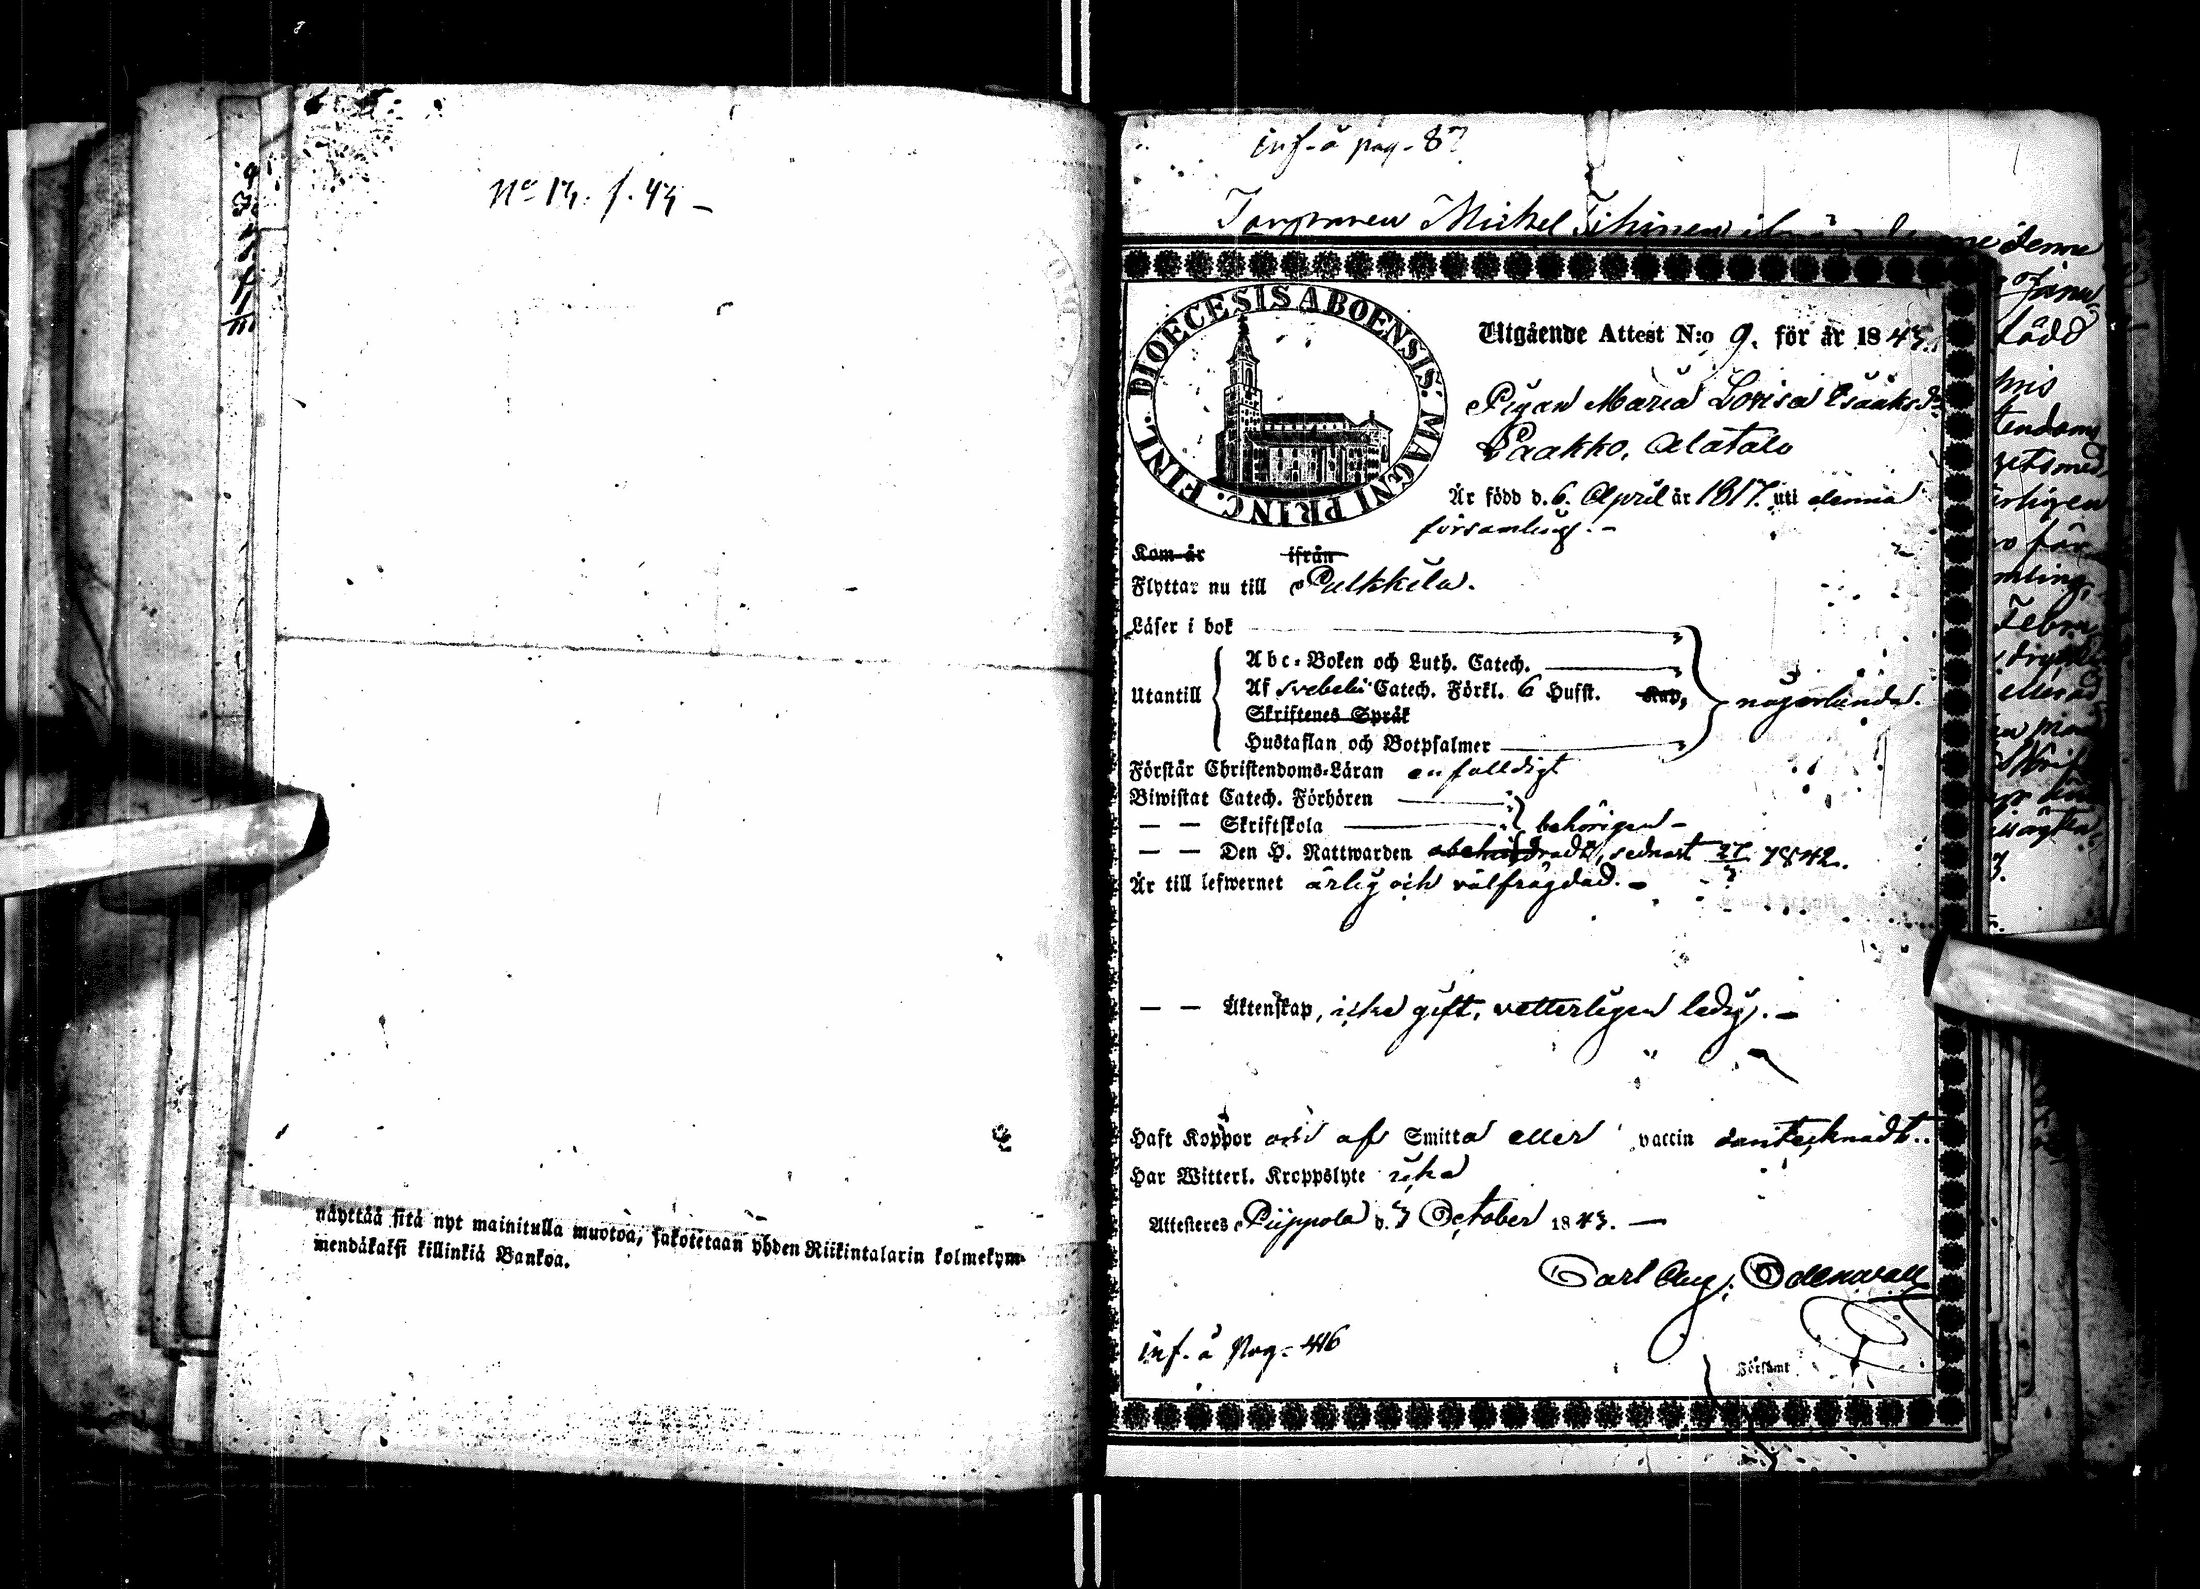 No 13. f. 43 –
näyttää sitä nyt mainitulla muotoa, sakoitetaan yhden Riikintalarin kolmekym-
mendäkaksi killinkiä Bankoa.
inf. å pag. 87
Michel Tihinen
denne
DIOECESIS ABOENSIS. MAGNI PRINC. FINL.
Utgående Attest N:o 9. för år 1843.
Pigan Maria Lovisa Isaaksdr
Paakko, Alatalo
Är född d. 6. April år 1817. uti denna
församling. –
Kom år ifrån
Flyttar nu till Pulkkila.
Läser i bok
Utantill
Abc-Boken och Luth. Catech.
Af Svebelii Catech. Förkl. 6 Hufst. Kap,
någorlunda.
Skriftenes Språk
Hustaflan och Botpsalmer
Förstår Christendoms-Läran enfalldigt
Biwistat Catech. Förhören
— — Skriftskola behörigen –
— — Den H. Nattwarden sednast 27/3 1842.
Är till lefwernet ärlig och välfrägdad. –
— — Äktenskap, icke gift, vetterligen ledig. –
Haft Koppor af Smitta eller vaccin oantecknadt.
Har Witterl. Kroppslyte icke
Attesteres Piippola d. 3 October 1843. —
Carl Aug. Odenwall
inf. å Pag. 416